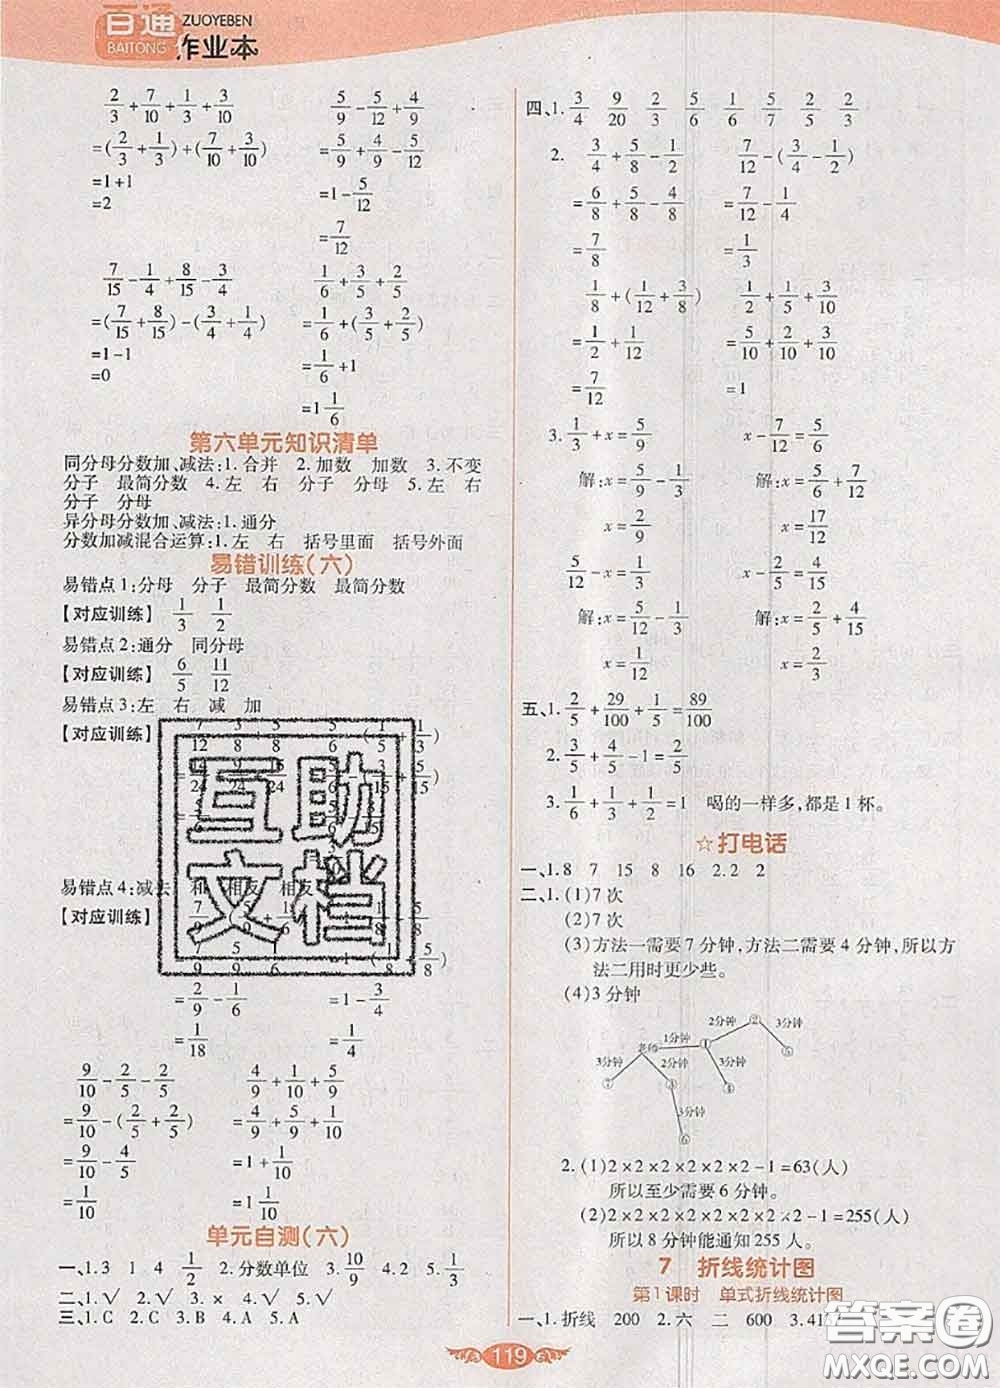 百通 ZUOYEBEN
BAITONG 作业本
2/3+7/10+1/3+3/10
=(2/3+1/3)+(7/10+3/10)
=1+1
=2
5/9-5/12+4/9
=5/9+4/9-5/12
=1-5/12
=7/12
7/15-1/4+8/15-3/4
=(7/15+8/15)-(3/4+1/4)
=1-1
=0
1/6+3/5+2/5
=1/6+(3/5+2/5)
=1/6+1
=1 1/6
第六单元知识清单
同分母分数加、减法:1.合并 2.加数 加数 3.不变
分子 最简分数 4.左 右 分子 分母 5.左 右
分子 分母
异分母分数加、减法:1.通分
分数加减混合运算:1.左 右 括号里面 括号外面
易错训练(六)
易错点1:分母 分子 最简分数 最简分数
【对应训练】 1/3 1/2
易错点2:通分 同分母
【对应训练】 6/5 11/12
易错点3:左 右 减 加
【对应训练】
易错点4:减法 相反 相反
【对应训练】
=2/9-1/6
=1/18
=1-3/4
=1/4
9/10-2/5-2/5
=9/10-(2/5+2/5)
=9/10-4/5
=1/10
4/9+1/10+5/9
=4/9+5/9+1/10
=1+1/10
=1 1/10
单元自测(六)
一、1.3 1 4 1/2 2.分数单位 3.10/9 4.2 5.1/3
二、1.√ 2.√ 3.× 4.√ 5.√
三、1.C 2.B 3.C 4.A 5.A
四、1.3/4 9/20 2/3 5/6 1/6 5/7 2/5 2/3
2. 3/4+5/8-1/2
=6/8+5/8-4/8
=7/8
7/12-(3/4-1/2)
=7/12-1/4
=1/3
1/8+(1/12+3/8)
=1/2+1/12
=7/12
1/2+1/5+3/10
=5/10+2/10+3/10
=1
3.1/3+x=5/9
解:x=5/9-1/3
x=2/9
x-7/12=5/6
解:x=5/6+7/12
x=17/12
5/12-x=1/3
解:x=5/12-1/3
x=1/12
x-2/5=4/15
解:x=2/5+4/15
x=2/3
五、1.2/5+29/100+1/5=89/100
2.3/5+4/5-1=2/5
3.1/6+1/3+1/2=1 喝的一样多,都是1杯。
☆打电话
一、1.8 7 15 8 16 2.2 2
二、1.(1)7次
(2)7次
(3)方法一需要7分钟,方法二需要4分钟,所以方
法二用时更少些。
(4)3分钟
老师 1分钟 ① 2分钟 ② 3分钟 ⑤
3分钟 ⑦ 2分钟 3分钟 ④
3分钟 ⑥
2.(1)2×2×2×2×2×2-1=63(人)
所以至少需要6分钟。
(2)2×2×2×2×2×2×2×2-1=255(人)
所以8分钟能通知255人。
7 折线统计图
第1课时 单式折线统计图
一、1.折线 200 2.六 二 600 3.41
119
互助
文档
答案圈
MXQE.COM